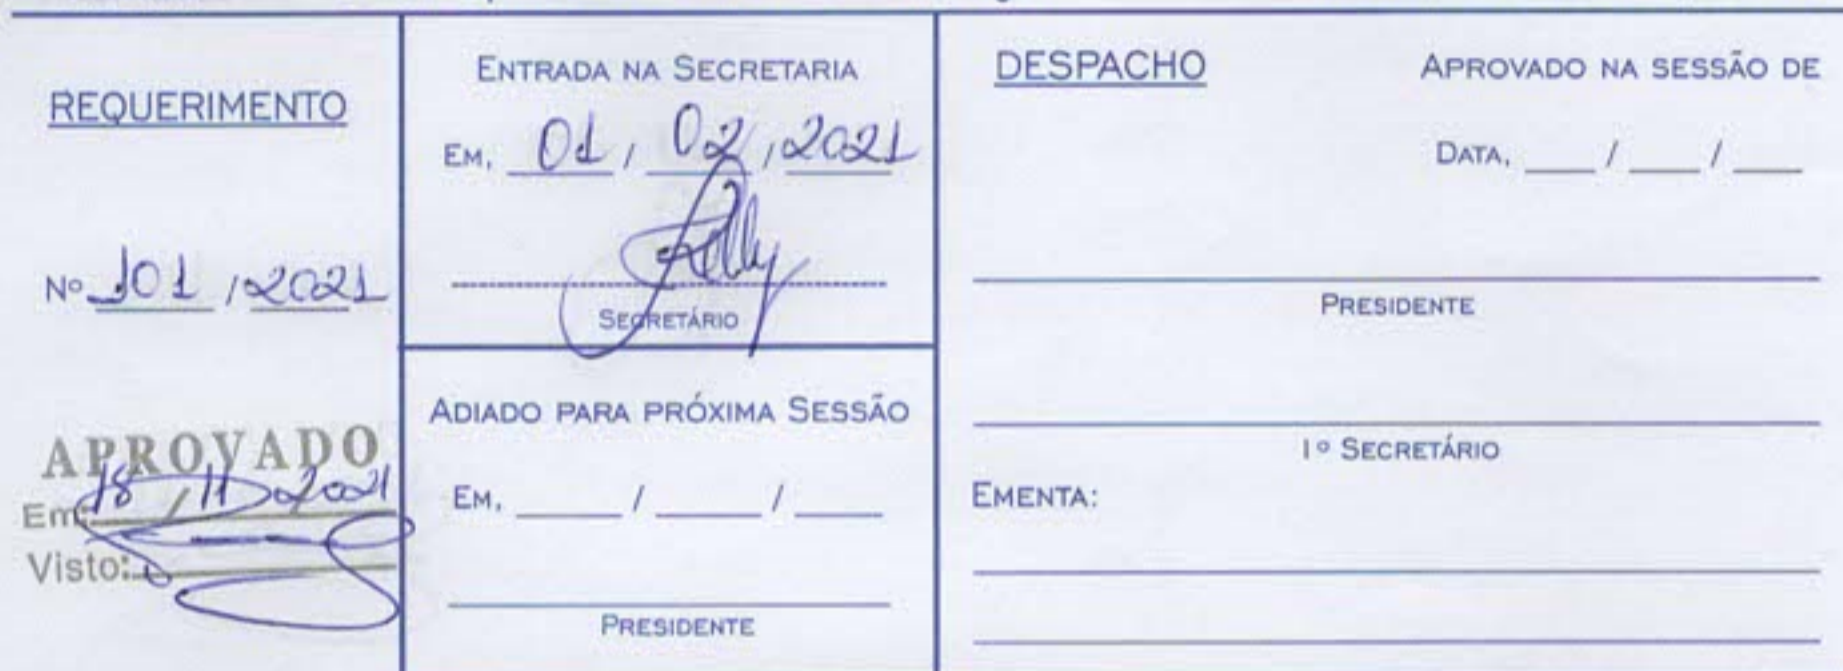 REQUERIMENTO
Nº 101 / 2021
APROVADO
Em: 18 / 11 / 2021
Visto:
ENTRADA NA SECRETARIA
EM, 01 / 02 / 2021
Kelly
SECRETÁRIO
ADIADO PARA PRÓXIMA SESSÃO
EM, ____ / ____ / ____
PRESIDENTE
DESPACHO
APROVADO NA SESSÃO DE
DATA, ____ / ____ / ____
PRESIDENTE
1º SECRETÁRIO
EMENTA: